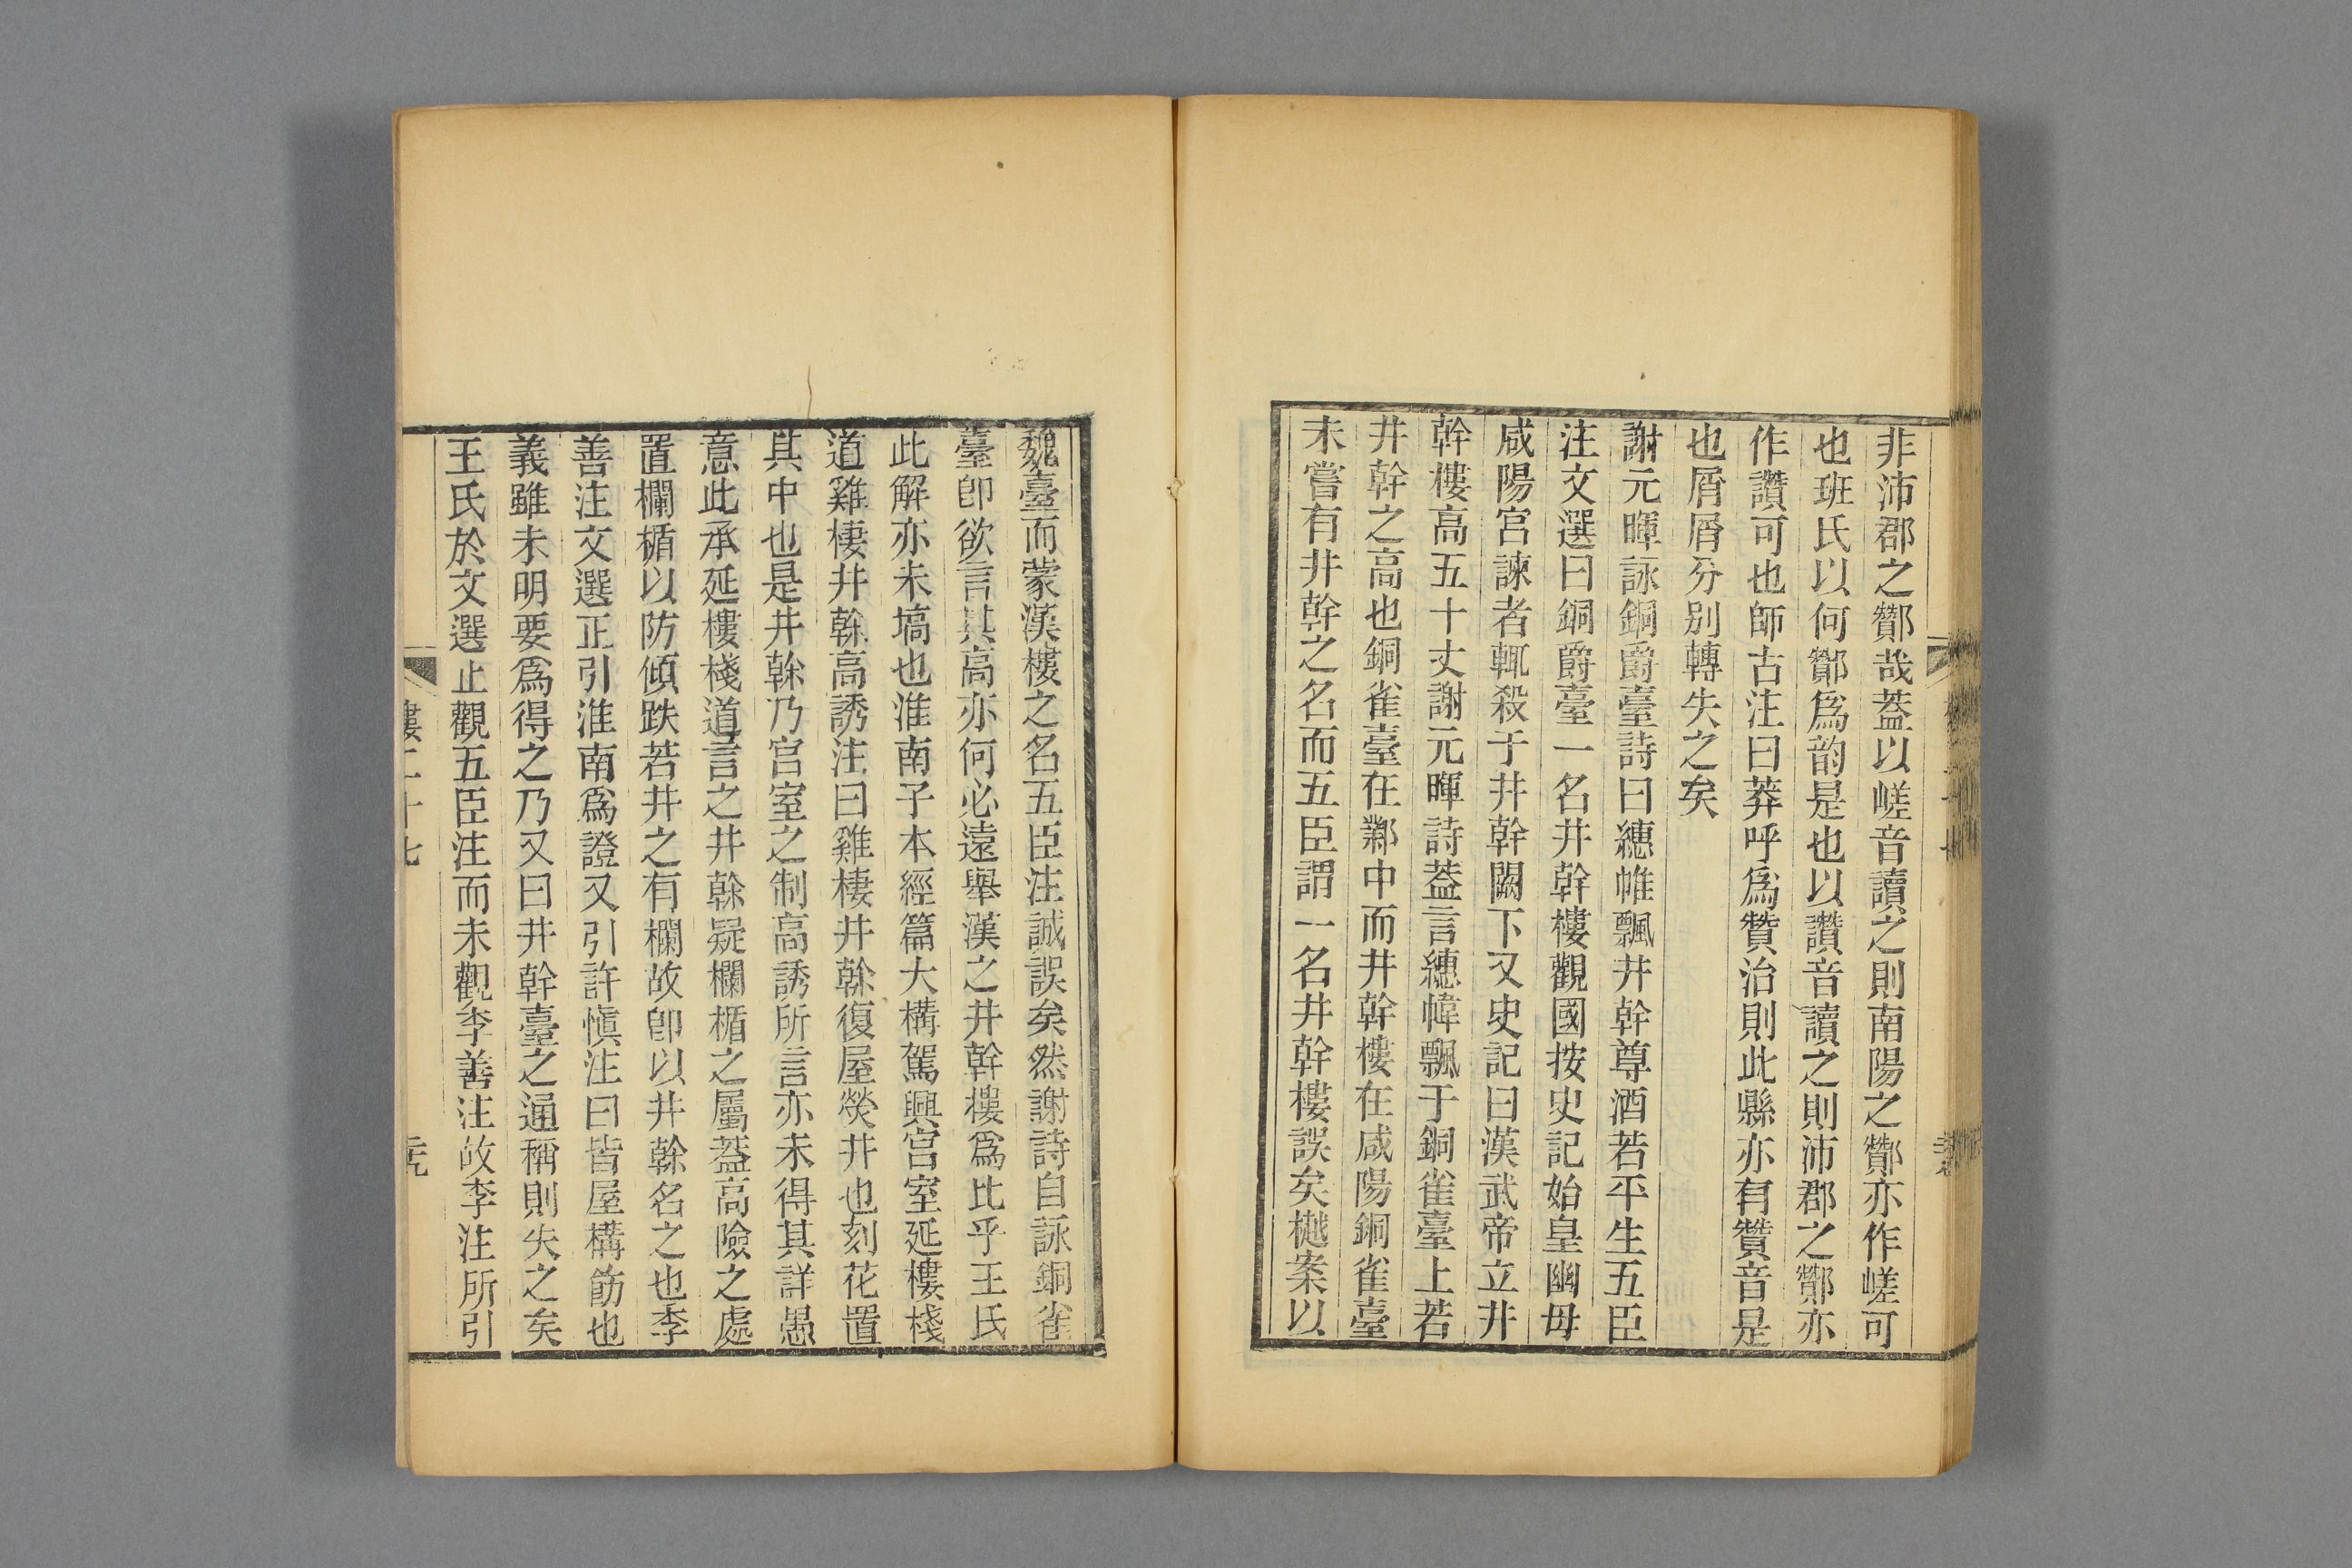 非沛郡之酇哉葢以嵯音讀之則南陽之酇亦作嵯可
也班氏以何酇爲韵是也以讚音讀之則沛郡之酇亦
作讚可也師古注曰莽呼爲贊治則此縣亦有贊音是
也屑屑分别轉失之矣
謝元暉詠銅爵臺詩曰繐帷飄井幹尊酒若平生五臣
注文選曰銅爵臺一名井幹樓觀國按史記始皇幽母
咸陽宫諫者輒殺于井幹闕下又史記曰漢武帝立井
幹樓高五十丈謝元暉詩葢言繐幃飄于銅雀臺上若
井幹之高也銅雀臺在鄴中而井幹樓在咸陽銅雀臺
未嘗有井幹之名而五臣謂一名井幹樓誤矣樾案以
魏臺而蒙漢樓之名五臣注誠誤矣然謝詩自詠銅雀
臺卽欲言其高亦何必遠舉漢之井幹樓爲比乎王氏
此解亦未塙也淮南子本經篇大構駕興宫室延樓棧
道雞棲井榦高誘注曰雞棲井榦復屋㷀井也刻花置
其中也是井榦乃宫室之制高誘所言亦未得其詳愚
意此承延樓棧道言之井榦疑欄楯之屬葢高險之處
置欄楯以防傾跌若井之有欄故卽以井榦名之也李
善注文選正引淮南爲證又引許愼注曰皆屋構飭也
義雖未明要爲得之乃又曰井幹臺之通稱則失之矣
王氏於文選止觀五臣注而未觀李善注故李注所引
樓二十七